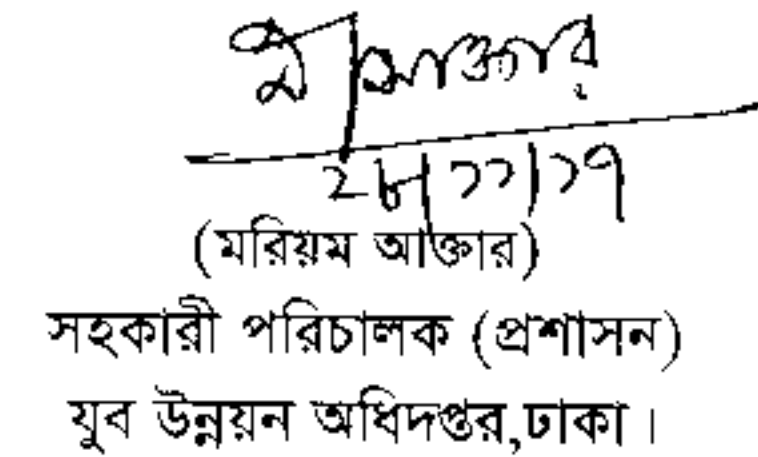 ২৮/১১/১৭
(মরিয়ম আক্তার)
সহকারী পরিচালক (প্রশাসন)
যুব উন্নয়ন অধিদপ্তর,ঢাকা।